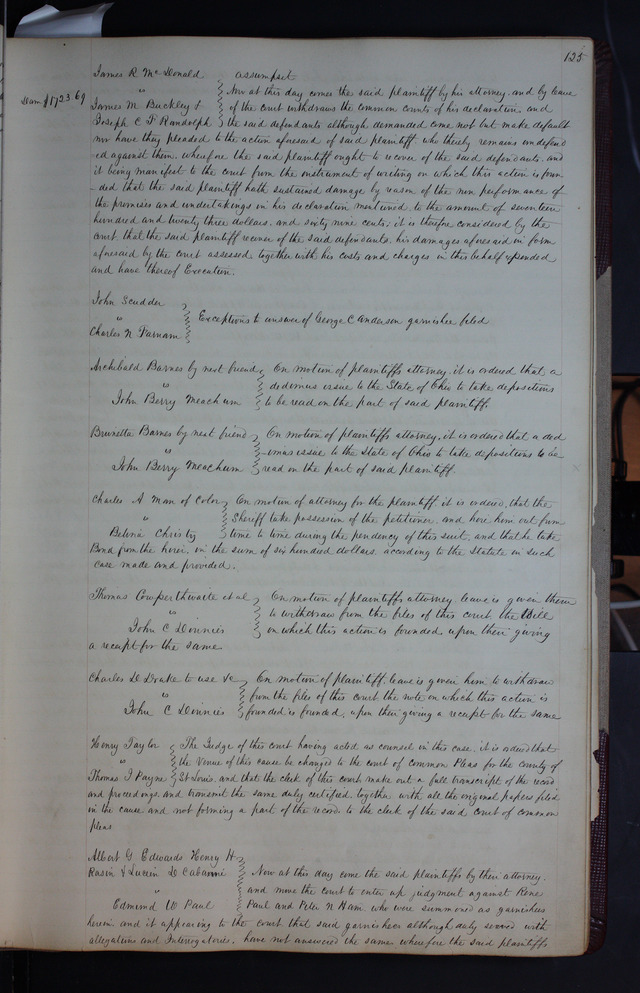 135
James R McDonald assumpsit
Dam $1723.69
" Now at this day comes the said plaintiff by his attorney, and by leave
James M Buckley & of the court withdraws the common counts of his declaration, and
Joseph C F Randolph the said defendants although demanded come not but make default
nor have they pleaded to the action aforesaid of said plaintiff, who thereby remains undefend
ed against them, wherefore the said plaintiff ought to recover of the said defendants, and
it being manifest to the court from the instrument of writing on which this action is foun
-ded that the said plaintiff hath sustained damage by reason of the non performance of
the promises and undertakings in his declaration mentioned, to the amount of seventeen
hundred and twenty three dollars, and sixty nine cents; it is therefore considered by the
court, that the said plaintiff recover of the said defendants, his damages aforesaid in form
aforesaid by the court assessed together with his costs and charges in this behalf expended
and have thereof Execution.
John Scudder
" Exceptions to answer of George C Anderson garnishee filed
Charles N Farnam
Archibald Barnes by next friend On motion of plaintiffs attorney, it is ordered that a
vs dedimus issue to the State of Ohio to take depositions
John Berry Meachum to be read on the part of said plaintiff.
Brunetta Barnes by next friend On motion of plaintiffs attorney, it is ordered that a ded
vs -imus issue to the State of Ohio to take depositions to be
John Berry Meachum read on the part of said plaintiff.
Charles A Man of Color On motion of attorney for the plaintiff it is ordered, that the
" Sheriff take possession of the petitioner, and hire him out from
Belina Christy time to time during the pendency of this suit, and that he take
Bond from the hirer, in the sum of six hundred dollars, according to the Statute in such
case made and provided.
Thomas Cowperthwaite et al On motion of plaintiffs attorney leave is given them
" to withdraw from the files of this court the Bill
John C Dinnies on which this action is founded, upon their giving
a receipt for the same
Charles D Drake to use &c On motion of plaintiff, leave is given him to withdraw
" from the files of this court the note on which this action is
John C Dinnies founded is founded, upon their giving a receipt for the same
Henry Taylor The Judge of this court having acted as counsel in this case, it is ordered that
" the Venue of this cause be changed to the court of common Pleas for the county of
Thomas J Payne St Louis, and that the clerk of this court make out a full transcript of the record
and proceedings, and transmit the same duly certified together with all the original papers filed
in the cause and not forming a part of the record to the clerk of the said court of common
pleas
Albert G Edwards Henry H
Rasin & Lucien D Cabanne Now at this day come the said plaintiffs by their attorney,
" and move the court to enter up judgment against Rene
Edmund W Paul Paul and Peter N Ham who were summoned as garnishees
herein and it appearing to the court that said garnishees although duly served with
allegations and Interrogatories, have not answered the same wherefore the said plaintiffs